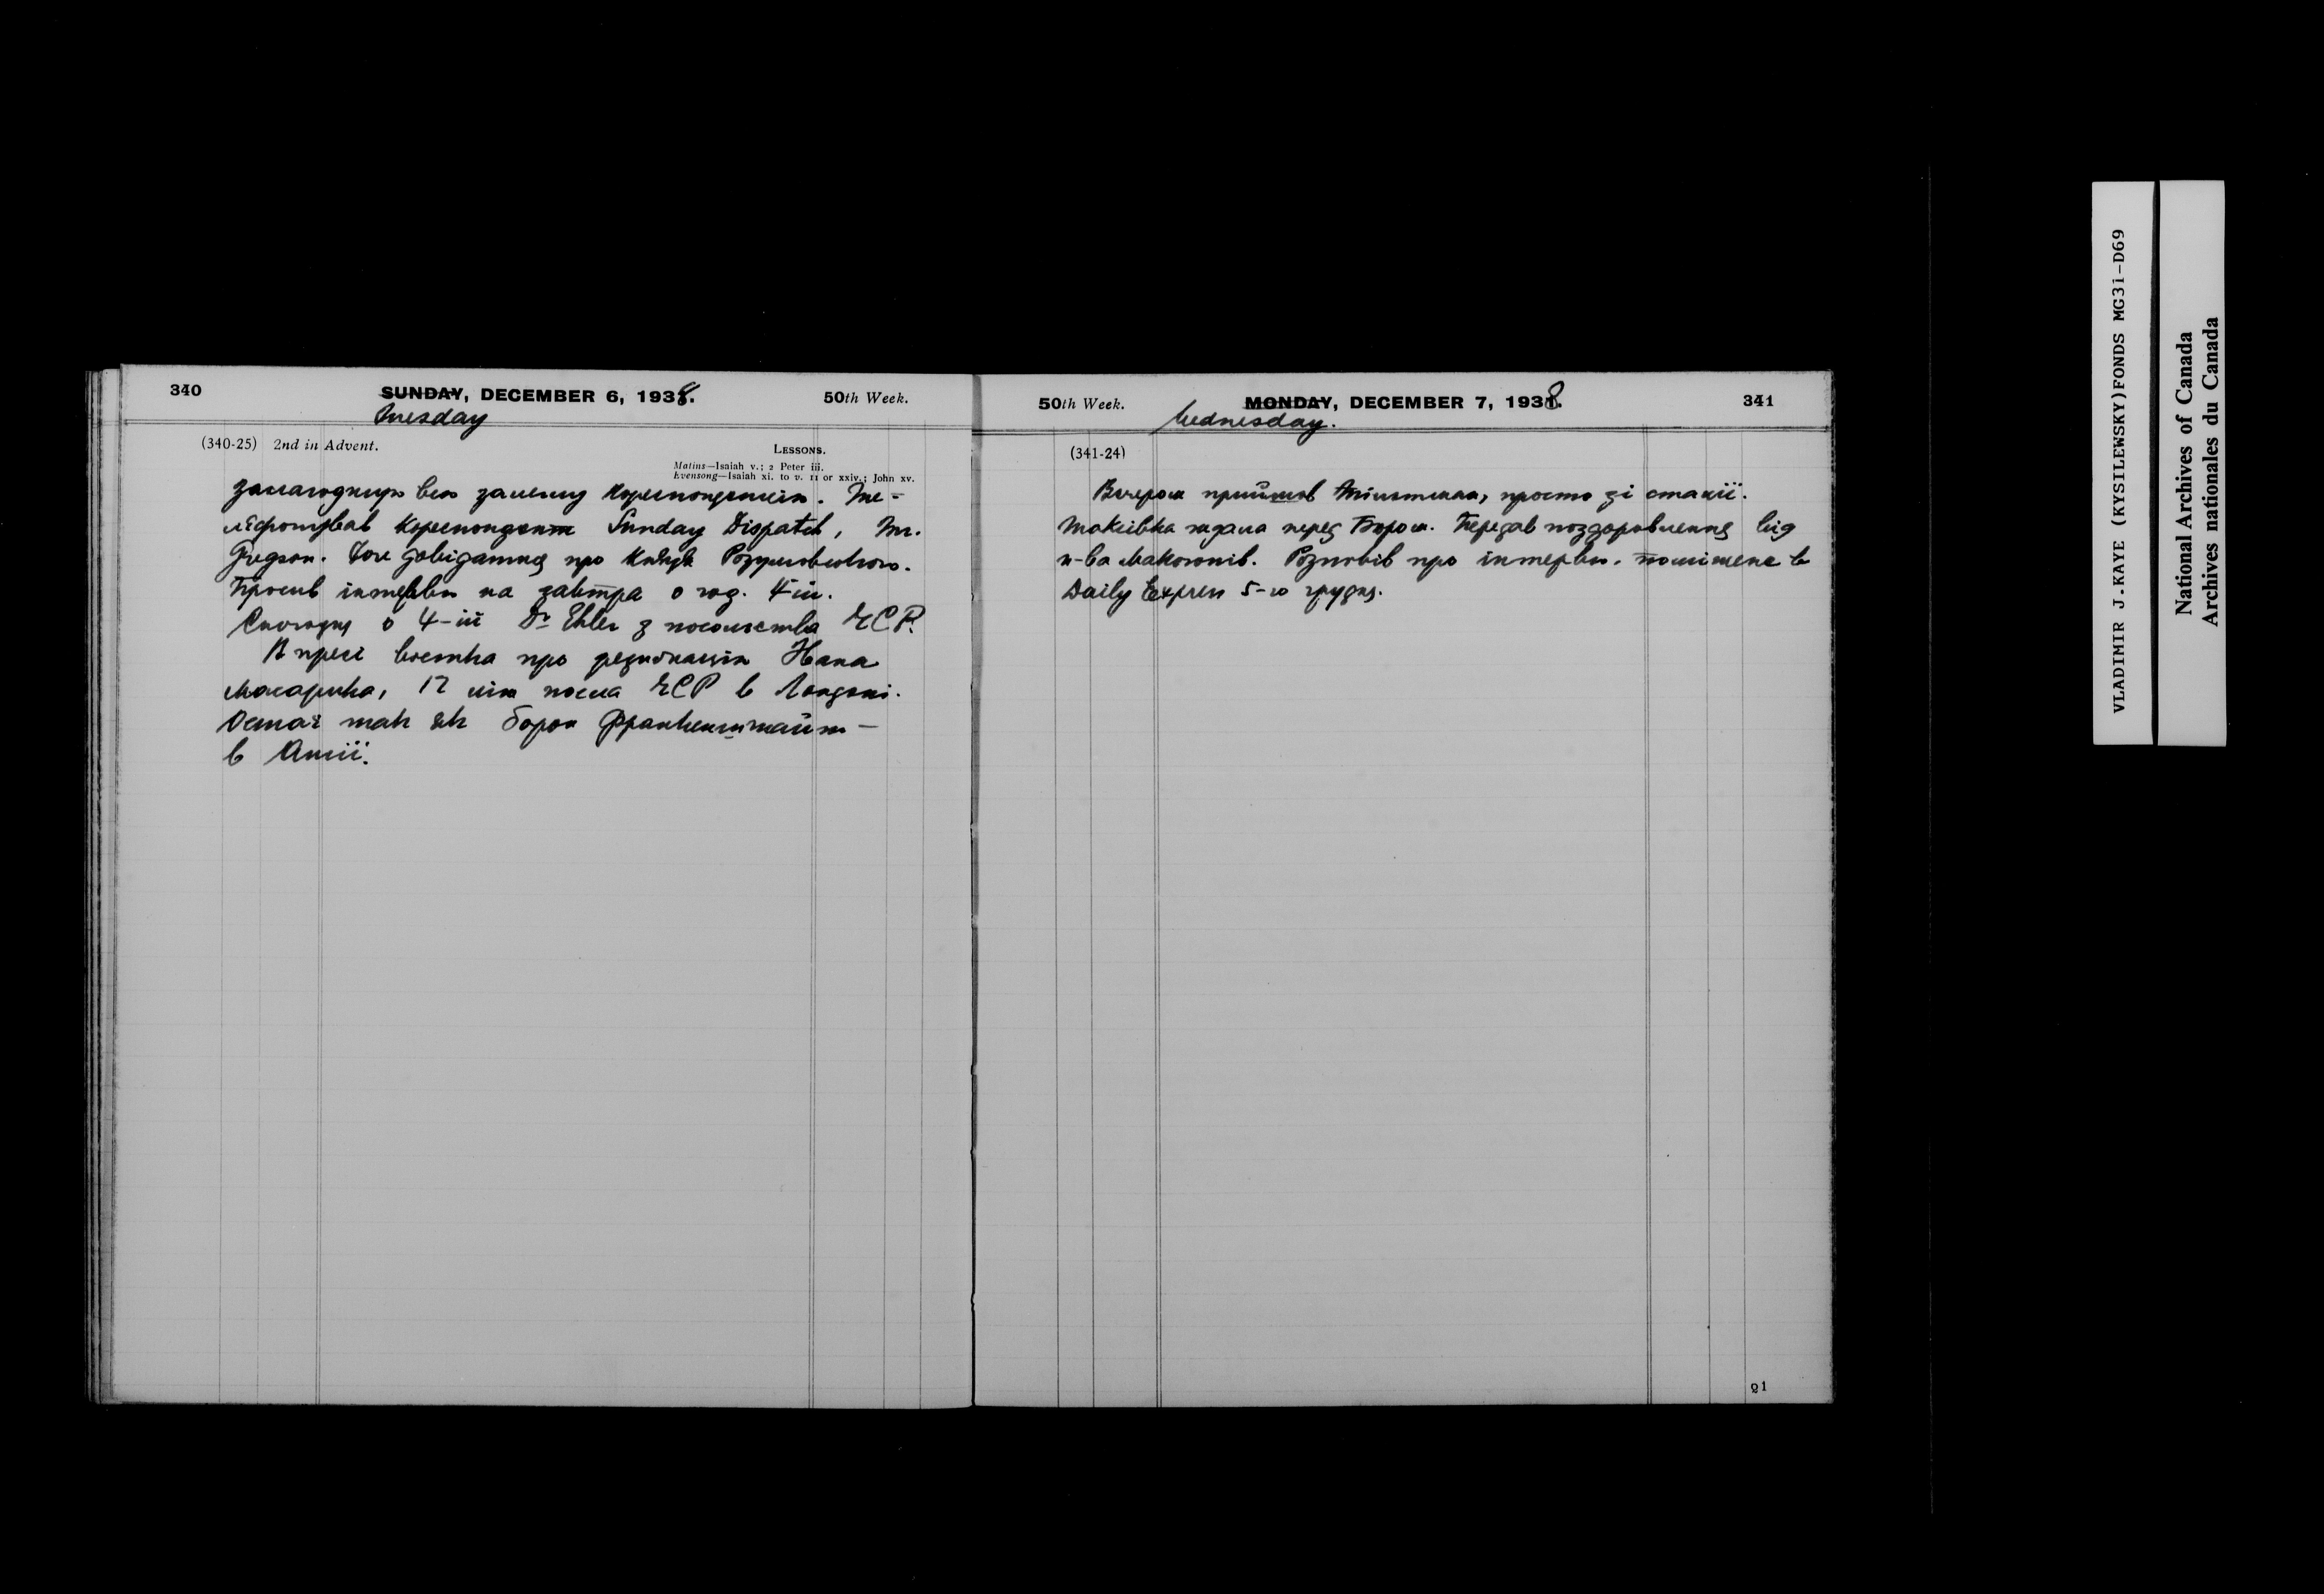 340
SUNDAY, DECEMBER 6, 1938.
50th Week.
Tuesday
(340-25) 2nd in Advent.
LESSONS.
Matins—Isaiah v.; 2 Peter iii.
Evensong—Isaiah xi. to v. 11 or xxiv.; John xv.
залагоджую всю залеглу кореспонденцію. Те-
лєфонував кореспондент Sunday Dispatch, Mr.
Gregson. Хоче довідатися про Розумовського.
Просив інтервю на завтра о год. 4-ій.
Сьогодня о 4-ій Dr Ehler з посольства ЧСР.
В пресі вістка про резигнацію Яна
Масарика, 12 літ посла ЧСР в Лондоні.
Остає так як барон Франкенштайн —
в Англії.
50th Week.
MONDAY, DECEMBER 7, 1938.
341
Wednesday.
(341-24)
Вечером прийшов просто зі стації.
Таксівка ждала перед Бюром. Передав поздоровлення від
п-ва Макогонів. Розповів про інтервю, поміщене в
Daily Express 5-го грудня.
21
VLADIMIR J.KAYE (KYSILEWSKY)FONDS MG31-D69
National Archives of Canada
Archives nationales du Canada